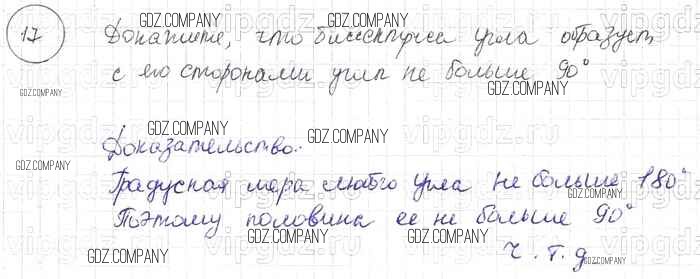 17 Докажите, что биссектриса угла образует
с его сторонами угол не больше 90°
Доказательство:
Градусная мера любого угла не больше 180°
Поэтому половина ее не больше 90°
ч.т.д
GDZ.COMPANY
GDZ.COMPANY
GDZ.COMPANY
GDZ.COMPANY
GDZ.COMPANY
GDZ.COMPANY
GDZ.COMPANY
GDZ.COMPANY
GDZ.COMPANY
GDZ.COMPANY
GDZ.COMPANY
GDZ.COMPANY